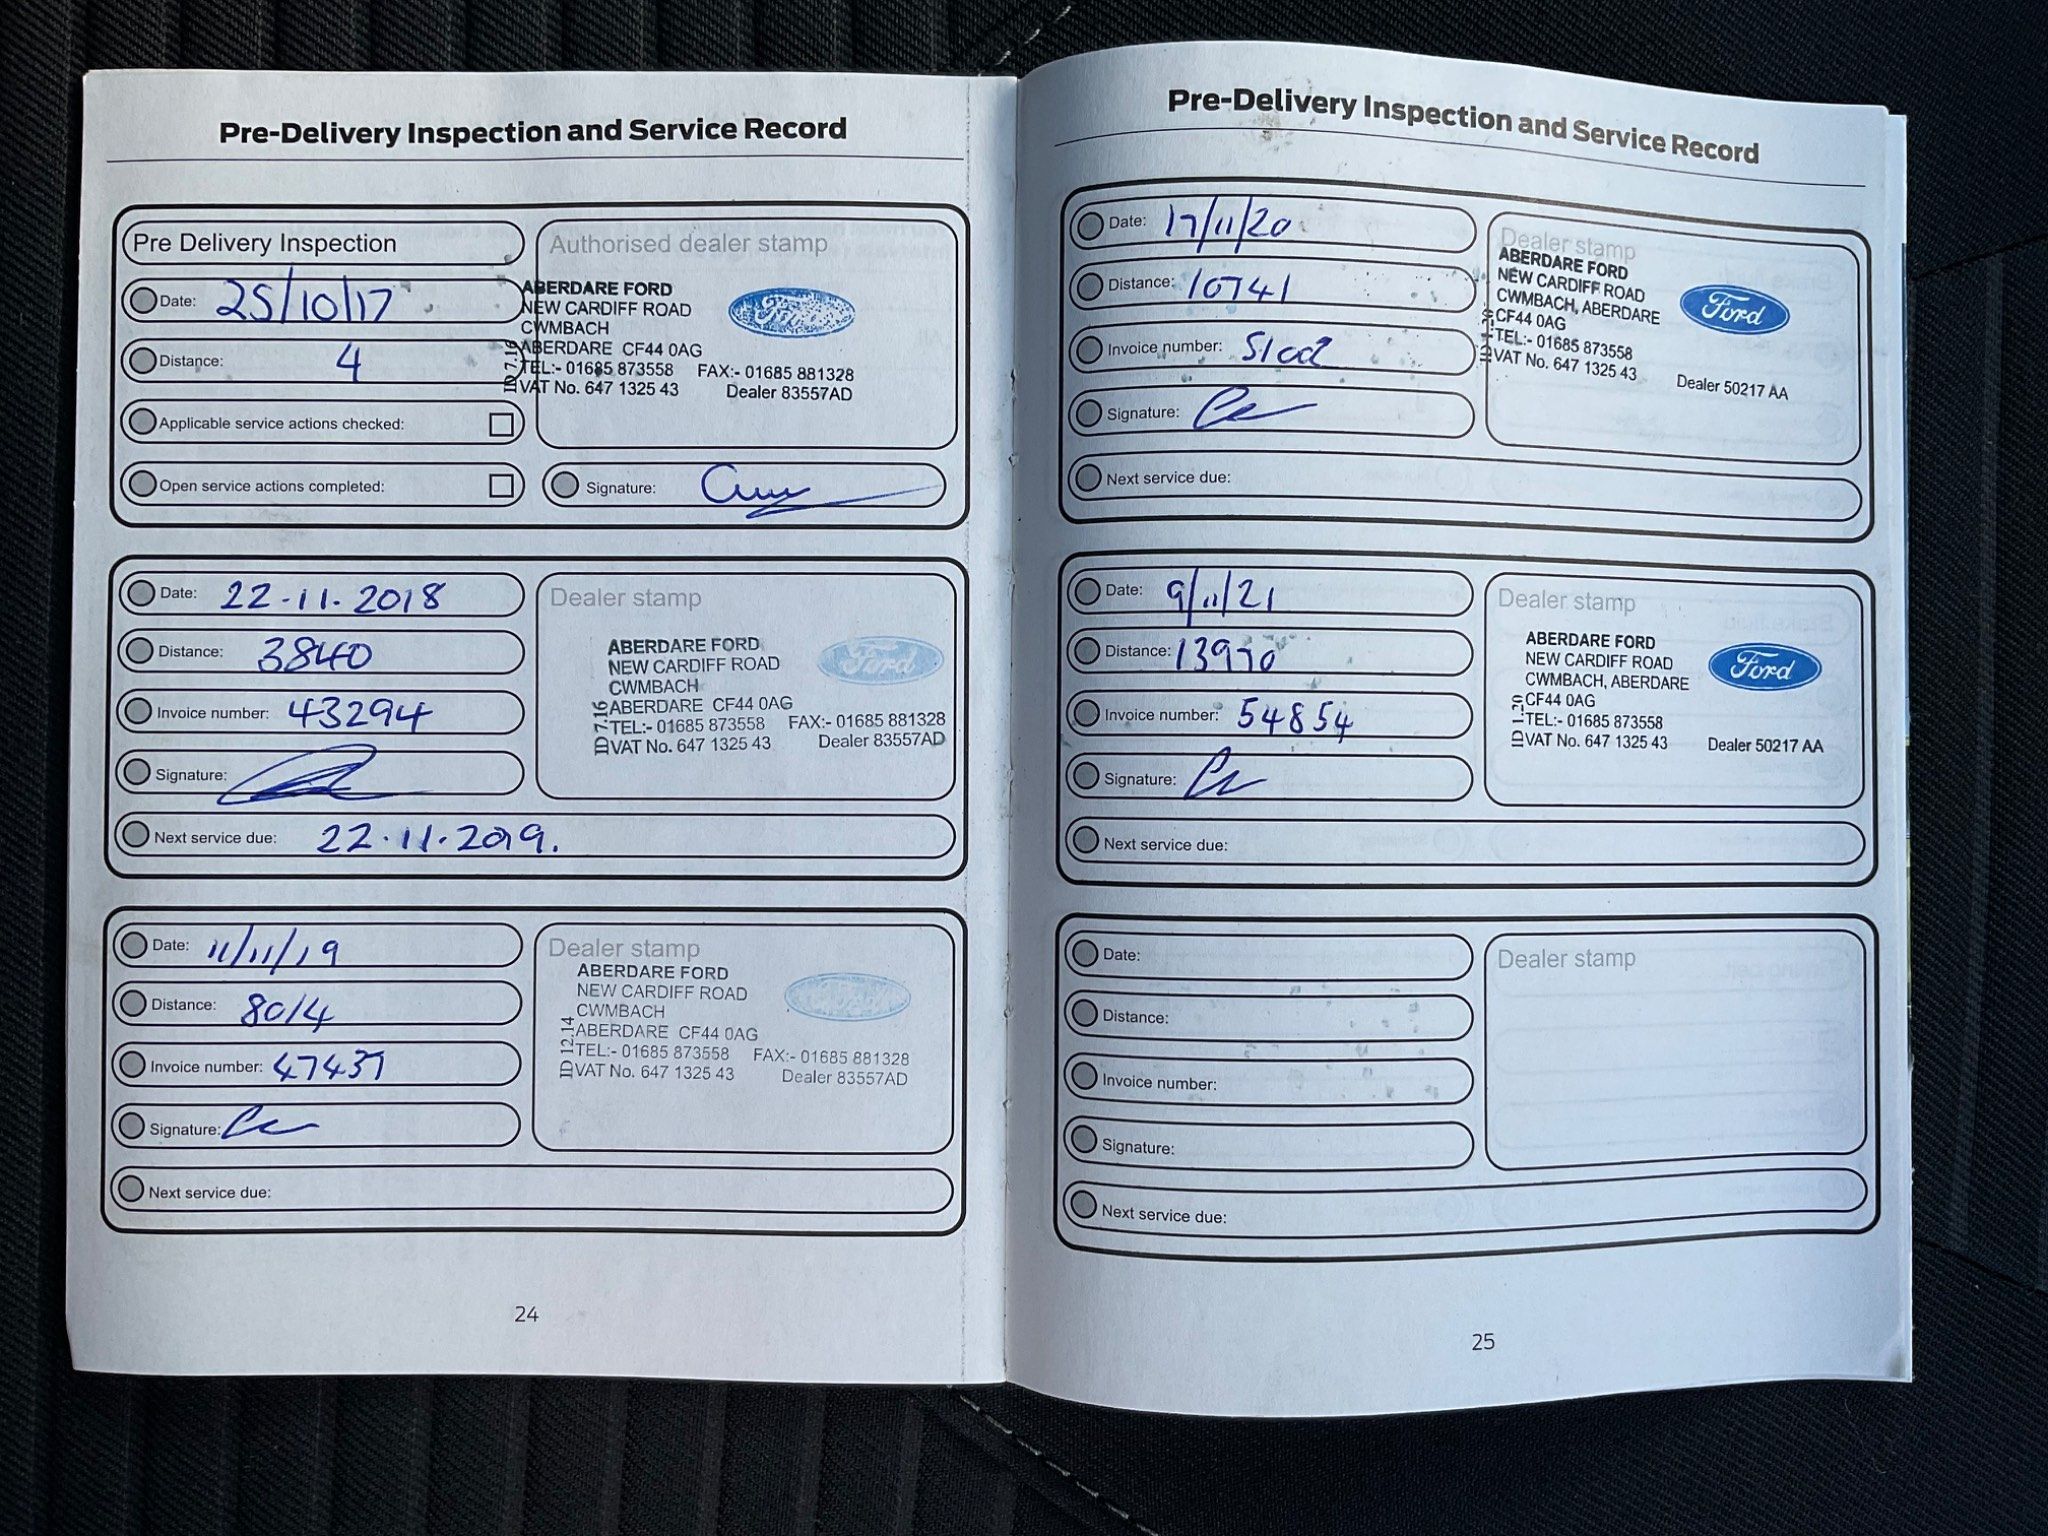 Pre-Delivery Inspection and Service Record
Pre Delivery Inspection
Date: 25/10/17
Distance: 4
Applicable service actions checked:
Open service actions completed:
Authorised dealer stamp
ABERDARE FORD
NEW CARDIFF ROAD
CWMBACH
ABERDARE CF44 0AG
TEL:- 01685 873558 FAX:- 01685 881328
VAT No. 647 1325 43 Dealer 83557AD
ID 7.16
Ford
Signature:
Date: 22.11.2018
Distance: 3840
Invoice number: 43294
Signature:
Next service due: 22.11.2019.
Dealer stamp
ABERDARE FORD
NEW CARDIFF ROAD
CWMBACH
ABERDARE CF44 0AG
TEL:- 01685 873558 FAX:- 01685 881328
VAT No. 647 1325 43 Dealer 83557AD
ID 7.16
Ford
Date: 11/11/19
Distance: 8014
Invoice number: 47437
Signature:
Next service due:
Dealer stamp
ABERDARE FORD
NEW CARDIFF ROAD
CWMBACH
ABERDARE CF44 0AG
TEL:- 01685 873558 FAX:- 01685 881328
VAT No. 647 1325 43 Dealer 83557AD
ID 12.14
Ford
24
Pre-Delivery Inspection and Service Record
Date: 17/11/20
Distance: 10741
Invoice number:
Signature:
Next service due:
Dealer stamp
ABERDARE FORD
NEW CARDIFF ROAD
CWMBACH, ABERDARE
CF44 0AG
TEL:- 01685 873558
VAT No. 647 1325 43 Dealer 50217 AA
Ford
Date: 9/11/21
Distance: 13970
Invoice number: 54854
Signature:
Next service due:
Dealer stamp
ABERDARE FORD
NEW CARDIFF ROAD
CWMBACH, ABERDARE
CF44 0AG
TEL:- 01685 873558
VAT No. 647 1325 43 Dealer 50217 AA
ID 1.20
Ford
Date:
Distance:
Invoice number:
Signature:
Next service due:
Dealer stamp
25